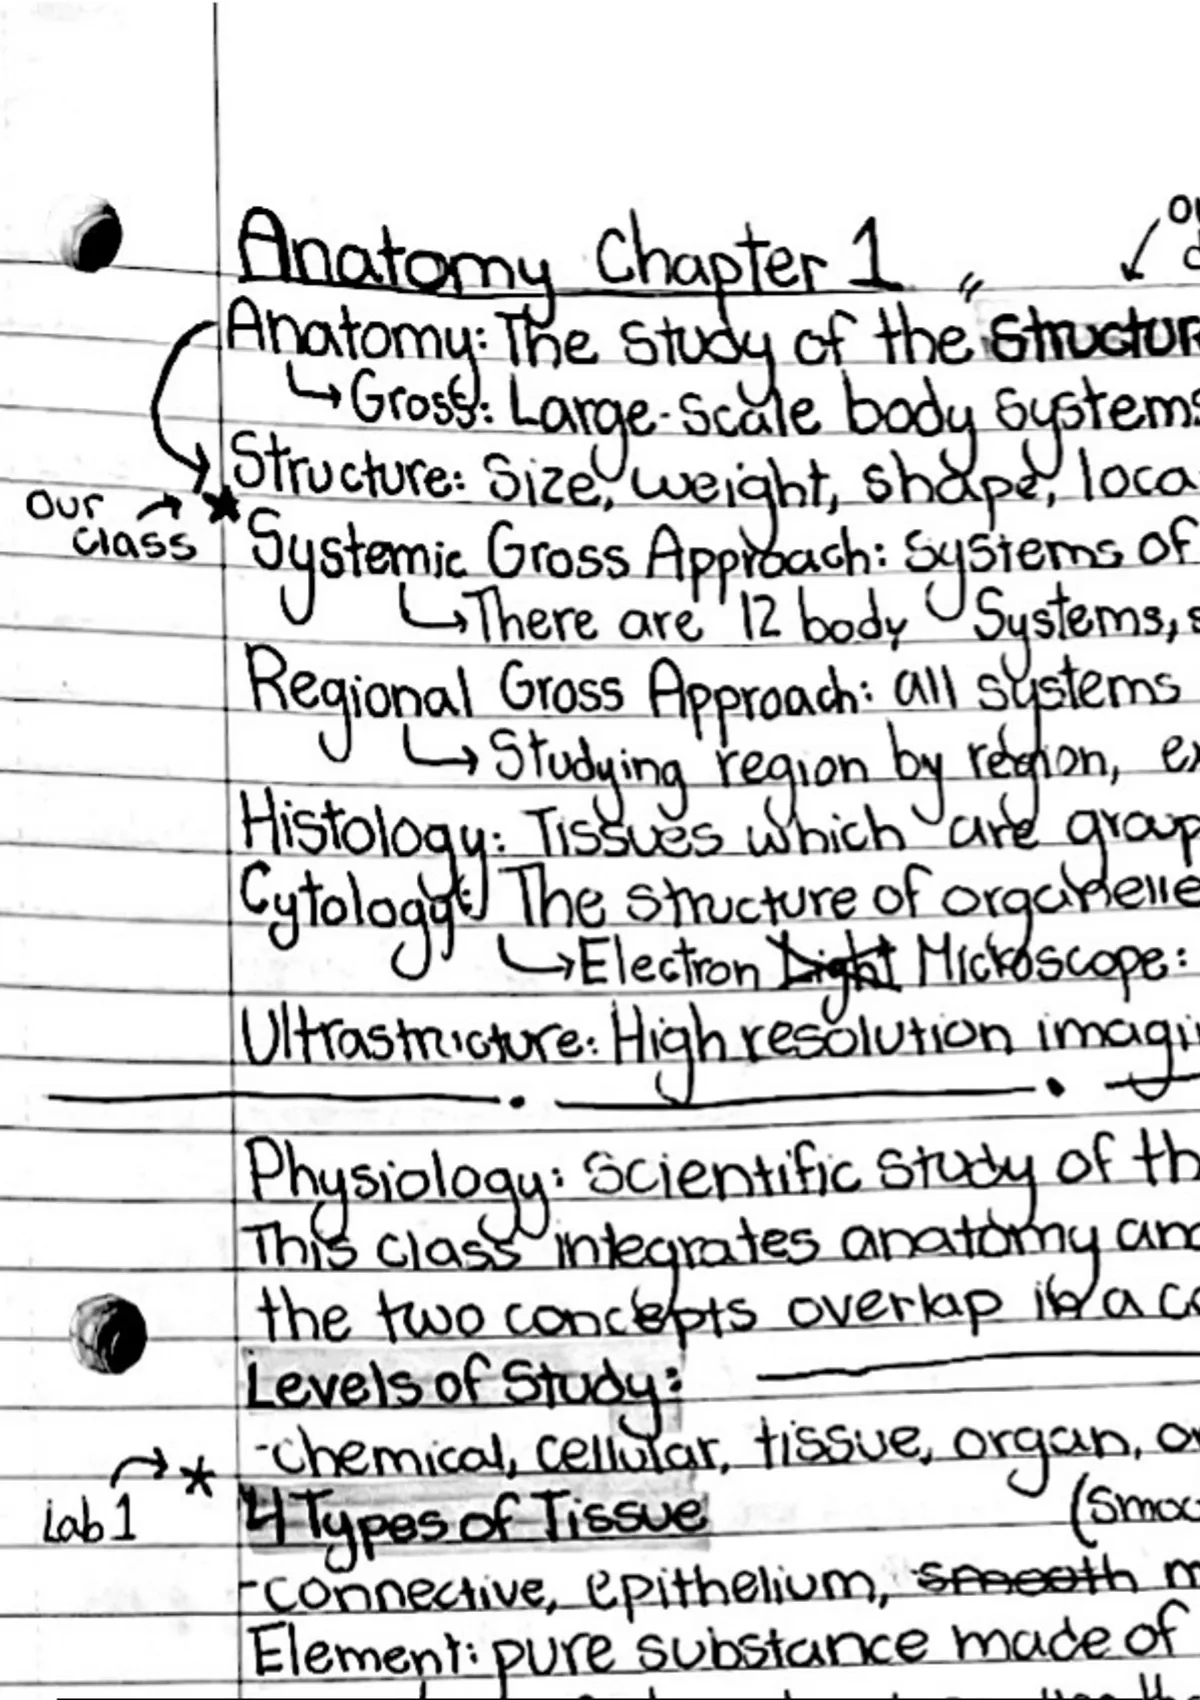 Anatomy Chapter 1
Anatomy: The study of the "structur
↳ Gross: Large-scale body systems
Structure: Size, weight, shape, loca
our class → ★
Systemic Gross Approach: Systems of
↳ There are 12 body Systems, s
Regional Gross Approach: all systems
↳ Studying region by region, ex
Histology: Tissues which are group
Cytology: The structure of organelle
↳ Electron Light Microscope:
Ultrastructure: High resolution imagi
Physiology: Scientific study of th
This class integrates anatomy and
the two concepts overlap in a co
Levels of Study:
-chemical, cellular, tissue, organ, or
Lab 1 → *
4 Types of Tissue
(Smoo
-connective, epithelium, smooth m
Element: pure substance made of